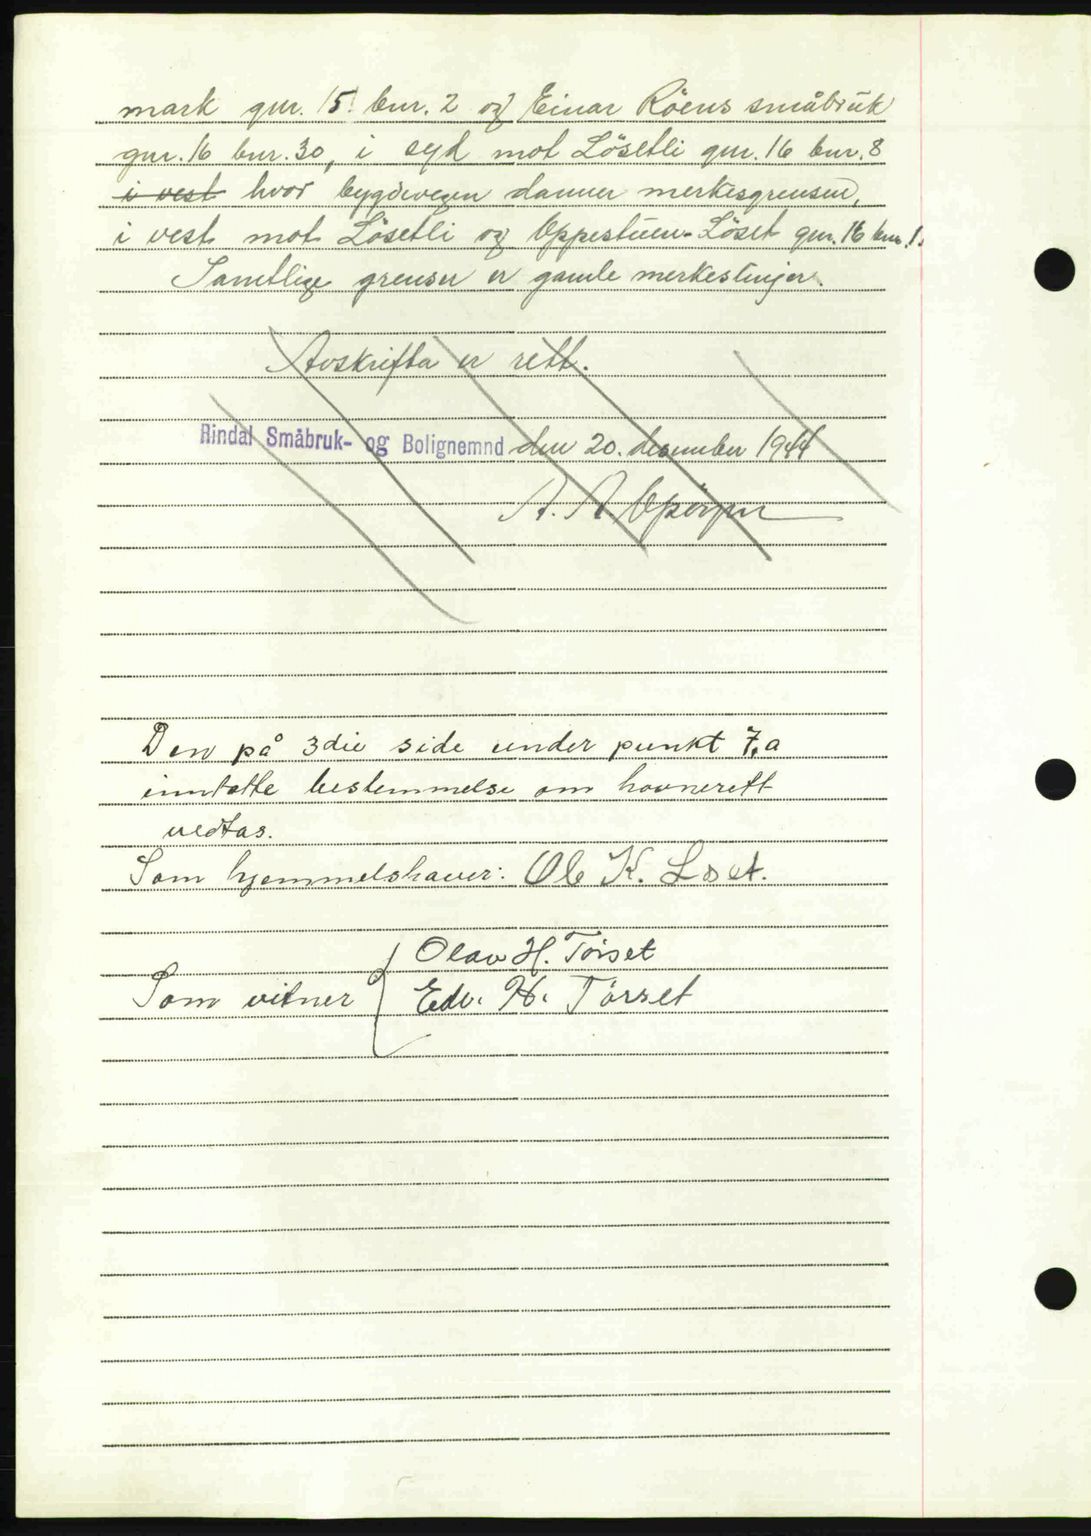 mark gnr. 15 bnr. 2 og Einar Röens småbruk
gnr. 16 bnr. 30, i syd mot Lösetli gnr. 16 bnr. 8
i vest hvor bygdevegen danner merkesgrensen,
i vest mot Lösetli og Oppestuen-Löset gnr. 16 bnr. 1.
Samtlige grenser er gamle merkeslinjer.
Avskrifta er rett.
Rindal Småbruk- og Bolignemnd den 20. desember 1944
A. A.
Den på 3die side under punkt 7,a
inntatte bestemmelse om havnerett
vedtas.
Som hjemmelshaver: Ole K. Löset.
Olav H. Törset
Som vitner
Edv. H. Törset